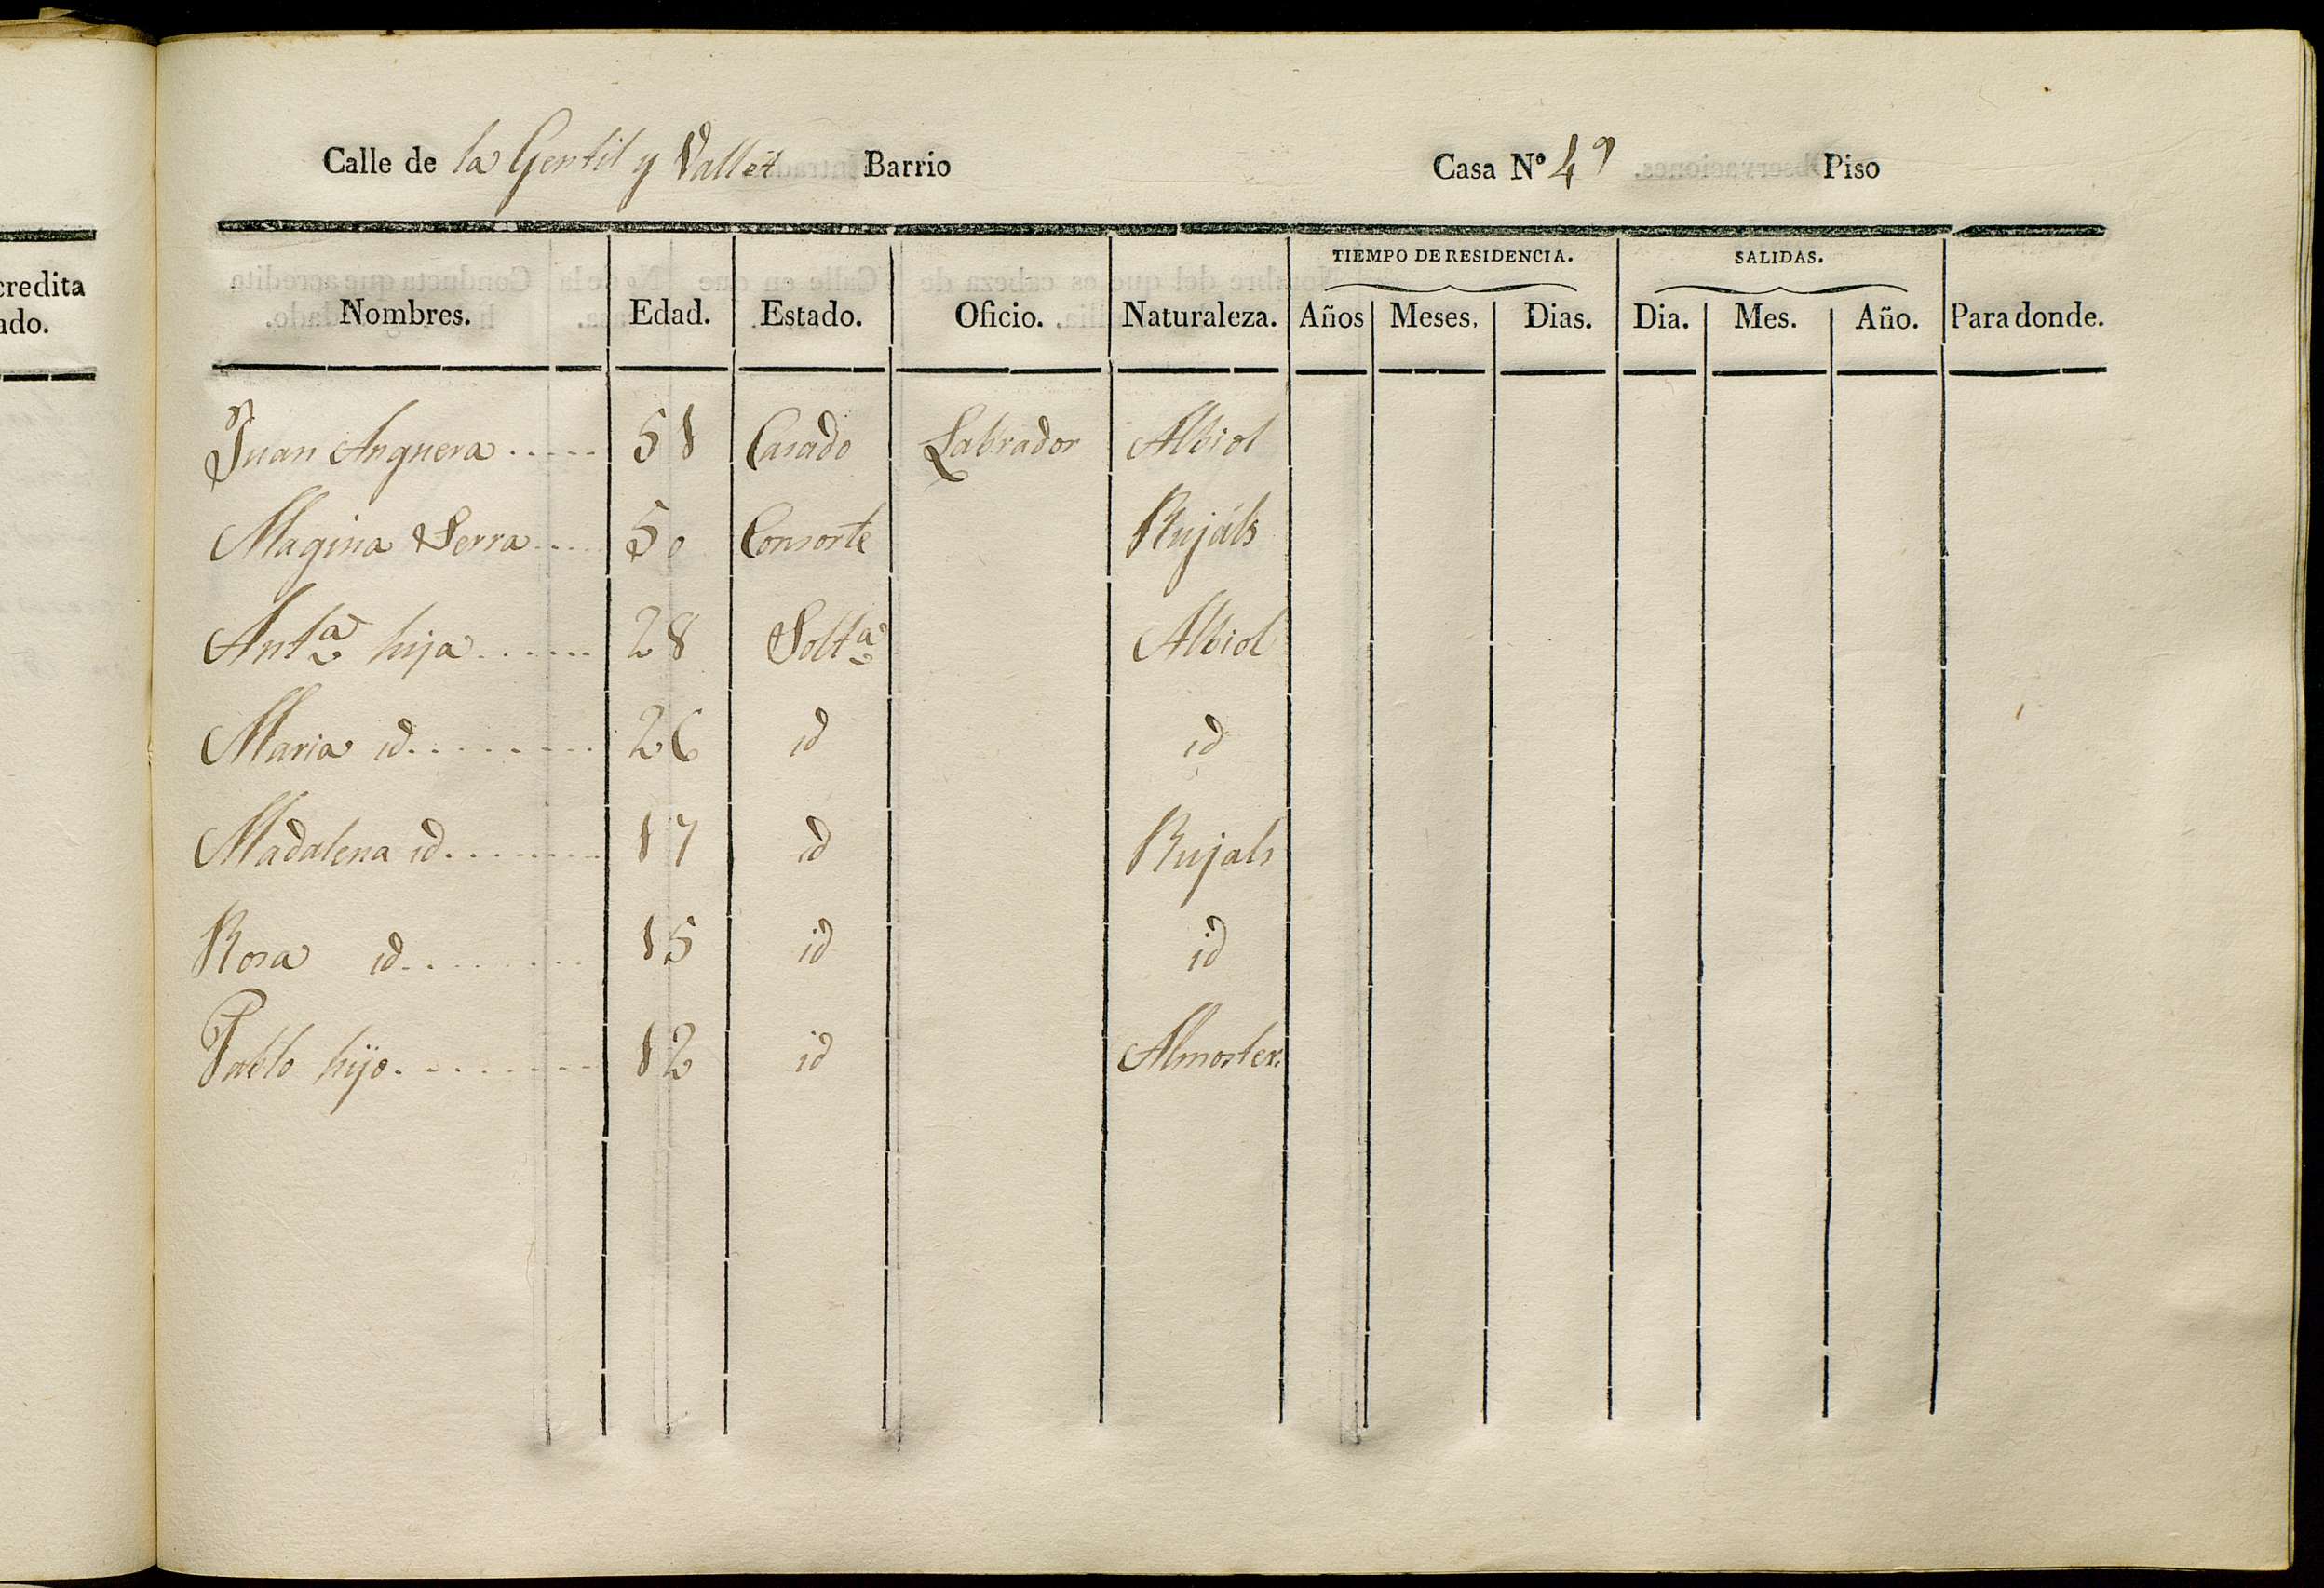 credita
ado.
Calle de la Gentil y Vallet Barrio Casa Nº 4º Piso
TIEMPO DE RESIDENCIA. SALIDAS.
Nombres. Edad. Estado. Oficio. Naturaleza. Años Meses. Dias. Dia. Mes. Año. Para donde.
Juan Anguera ..... 51 Casado Labrador Albiol
Magina Serra .... 50 Consorte Rujáls
Antª hija ...... 28 Soltª Albiol
Maria id ........ 26 id id
Madalena id ........ 17 id Rujals
Rosa id ........ 15 id id
Pablo hijo ........ 12 id Almoster.